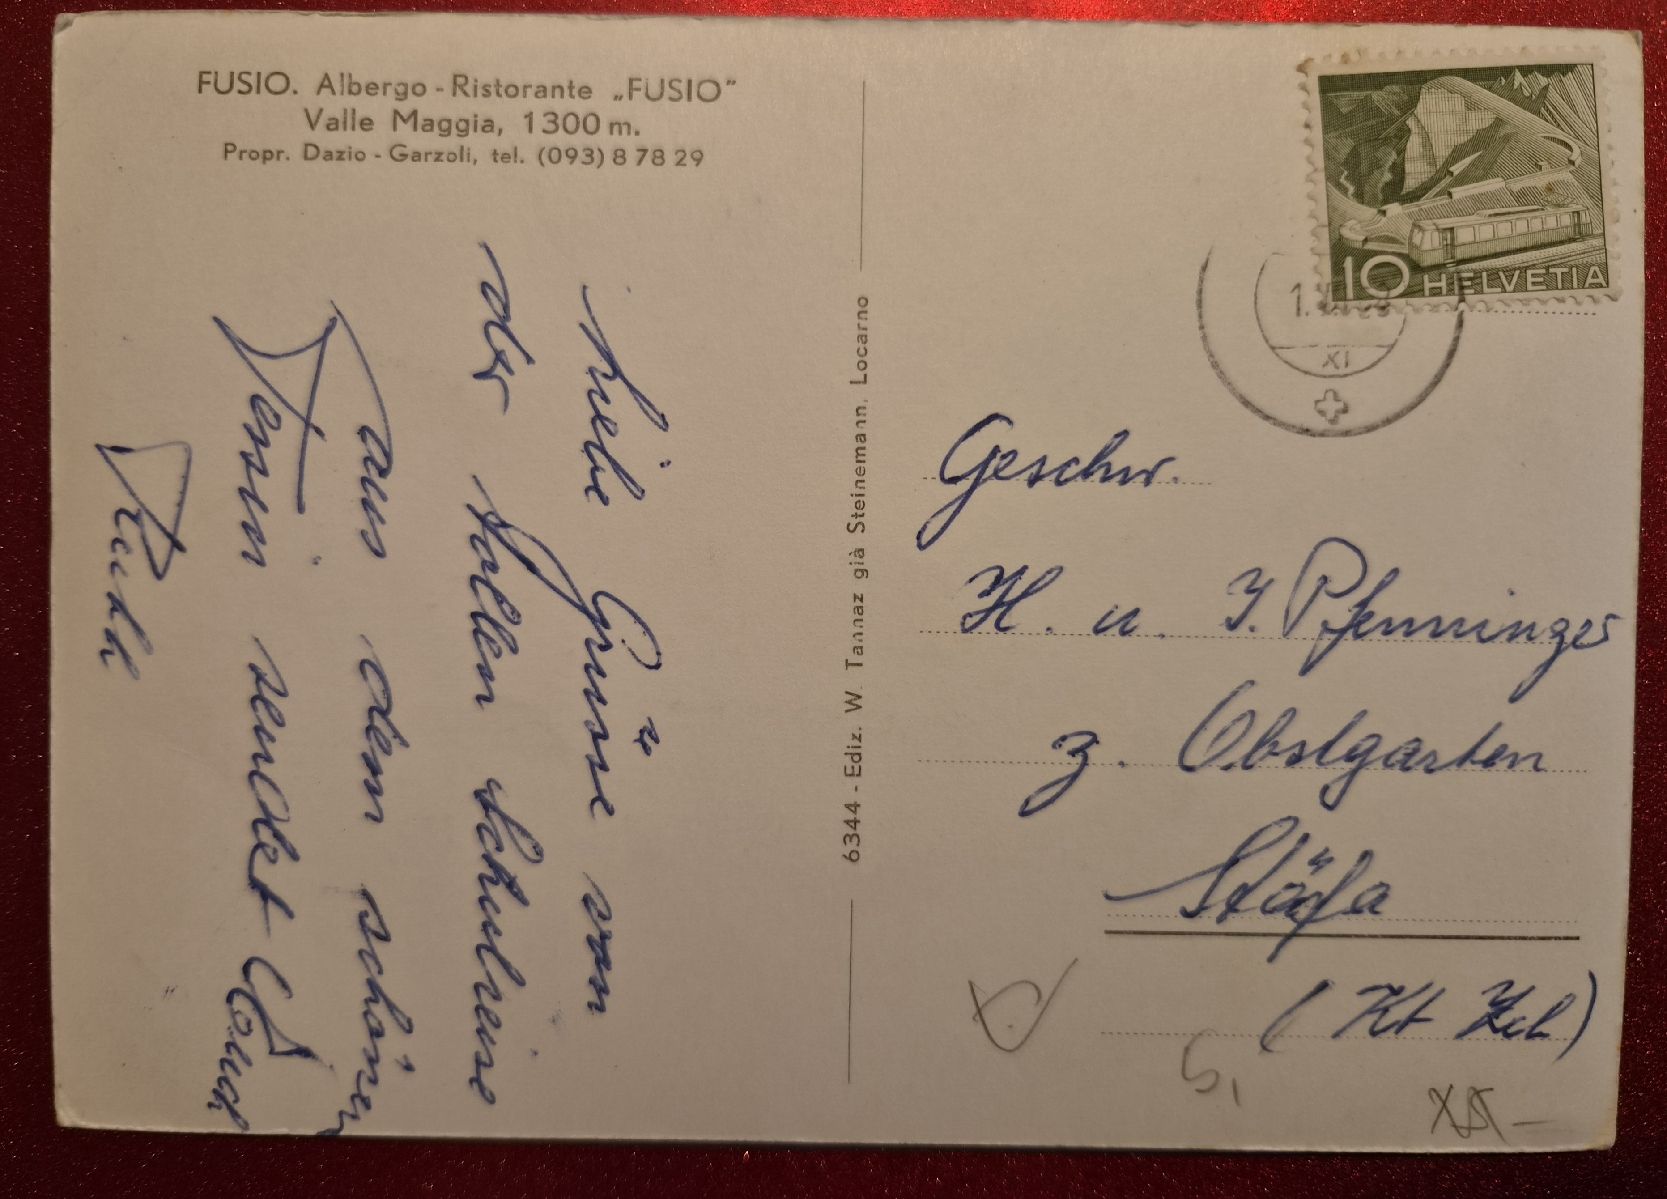 FUSIO. Albergo - Ristorante „FUSIO"
Valle Maggia, 1300 m.
Propr. Dazio - Garzoli, tel. (093) 8 78 29
Liebe Grüsse von
der tollen Schulreise
aus dem schönen
Tessin sendet Euch
Ruth
6344 - Ediz. W. Tannaz già Steinemann, Locarno
10 HELVETIA
XI
Geschw.
H. u. I. Pfenninger
z. Obstgarten
Stäfa
(Kt Zch)